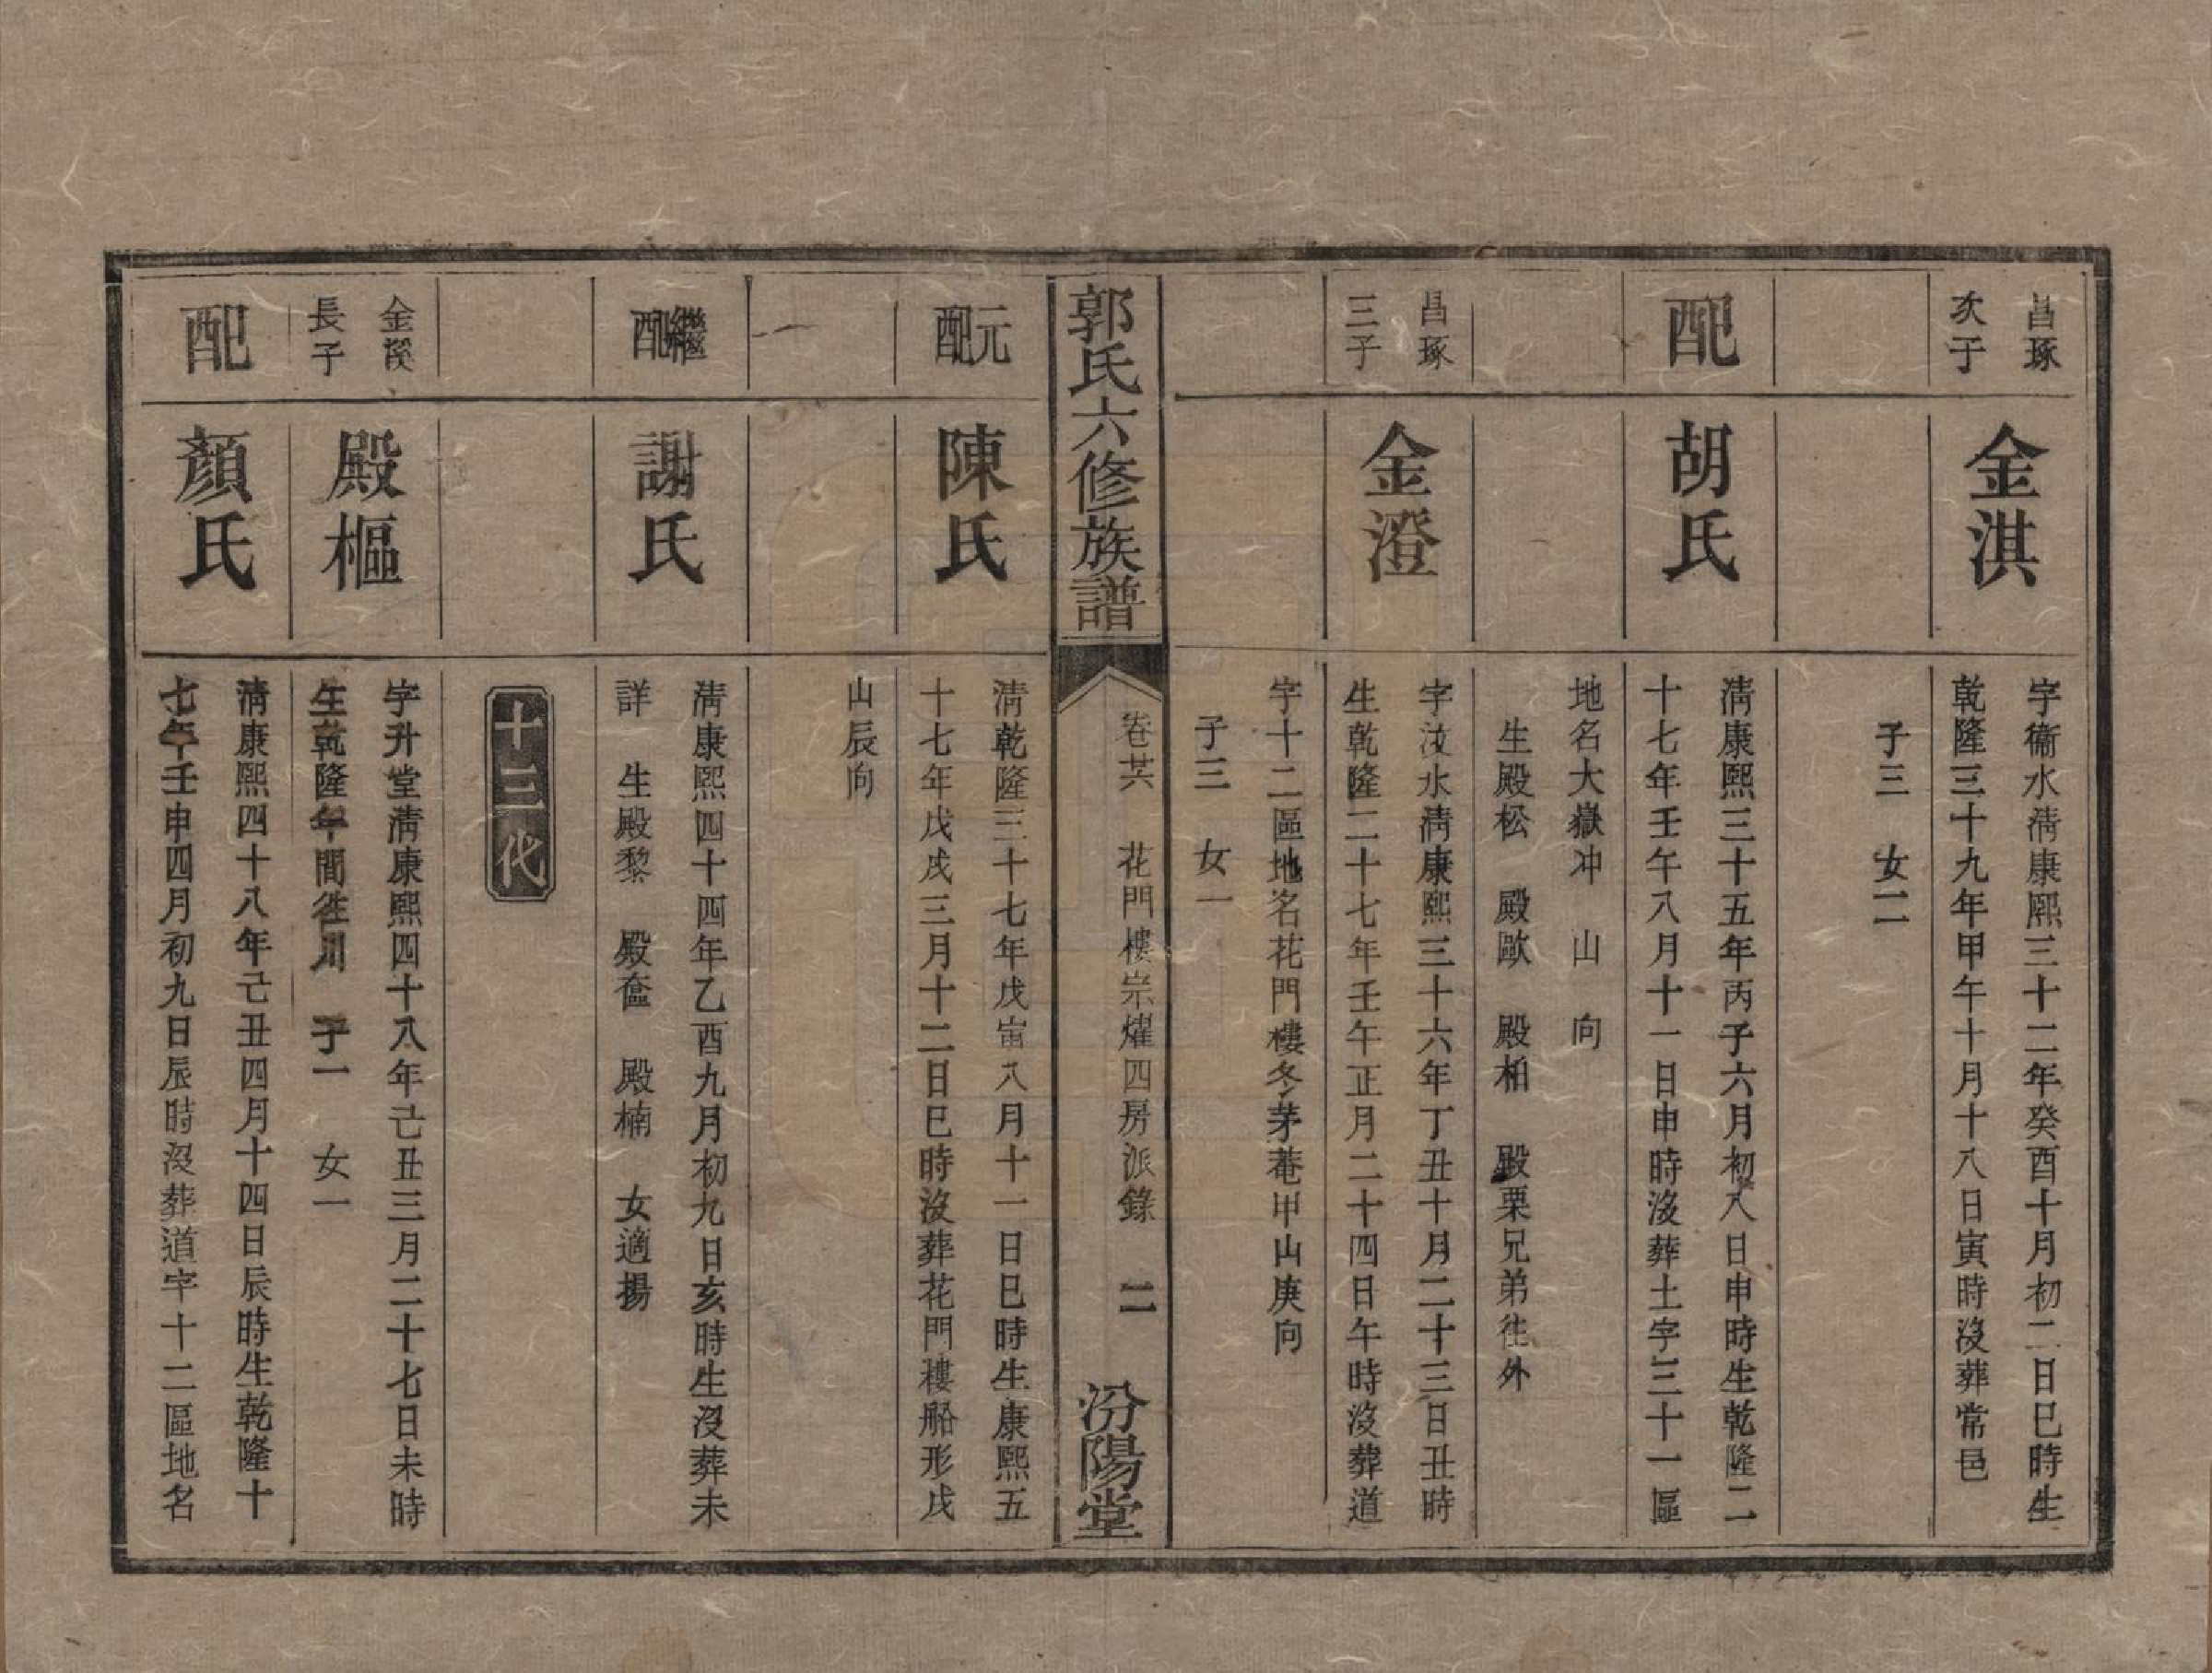 昌琢
次子
金淇
字衞水淸康熙三十二年癸酉十月初二日巳時生
乾隆三十九年甲午十月十八日寅時沒葬常邑
子三　女二
配
胡氏
淸康熙三十五年丙子六月初八日申時生乾隆二
十七年壬午八月十一日申時沒葬土字三十一區
地名大嶽冲　山　向
生殿松　殿歐　殿柏　殿栗兄弟徃外
昌琢
三子
金澄
字汶水淸康熙三十六年丁丑十月二十三日丑時
生乾隆二十七年壬午正月二十四日午時沒葬道
字十二區地名花門樓冬茅菴甲山庚向
子三　女一
郭氏六修族譜
卷廿六　花門樓崇燿四房派錄　二
汾陽堂
元配
陳氏
淸乾隆三十七年戊寅八月十一日巳時生康熙五
十七年戊戌三月十二日巳時沒葬花門樓船形戌
山辰向
繼配
謝氏
淸康熙四十四年乙酉九月初九日亥時生沒葬未
詳　生殿黎　殿奩　殿楠　女適揚
十三代
金溪
長子
殿樞
字升堂淸康熙四十八年己丑三月二十七日未時
生乾隆年間徃川　子一　女一
配
顏氏
淸康熙四十八年己丑四月十四日辰時生乾隆十
七年壬申四月初九日辰時沒葬道字十二區地名